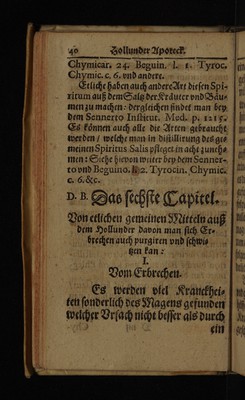 40 Hollunder Apoteck.
Chymicar. 24. Beguin. l. 1. Tyroc.
Chymic. c. 6. und andere.
Etliche haben auch andere Art diesen Spi-
ritum auß dem Saltz der Kräuter und Bäu-
men zu machen: dergleichen findet man bey
dem Sennerto Institut. Med. p. 1215.
Es können auch alle die Arten gebraucht
werden / welche man in distillirung des ge-
meinen Spiritus Salis pfleget in acht zuneh-
men: Siehe hievon weiter bey dem Senner-
to und Beguino. l. 2. Tyrocin. Chymic.
c. 6. &c.
D. B. Das sechste Capitel.
Von etlichen gemeinen Mitteln auß
dem Hollunder davon man sich Er-
brechen auch purgiren und schwi-
tzen kan:
I.
Vom Erbrechen.
Es werden viel Kranckhei-
ten sonderlich des Magens gefunden
welcher Ursach nicht besser als durch
ein